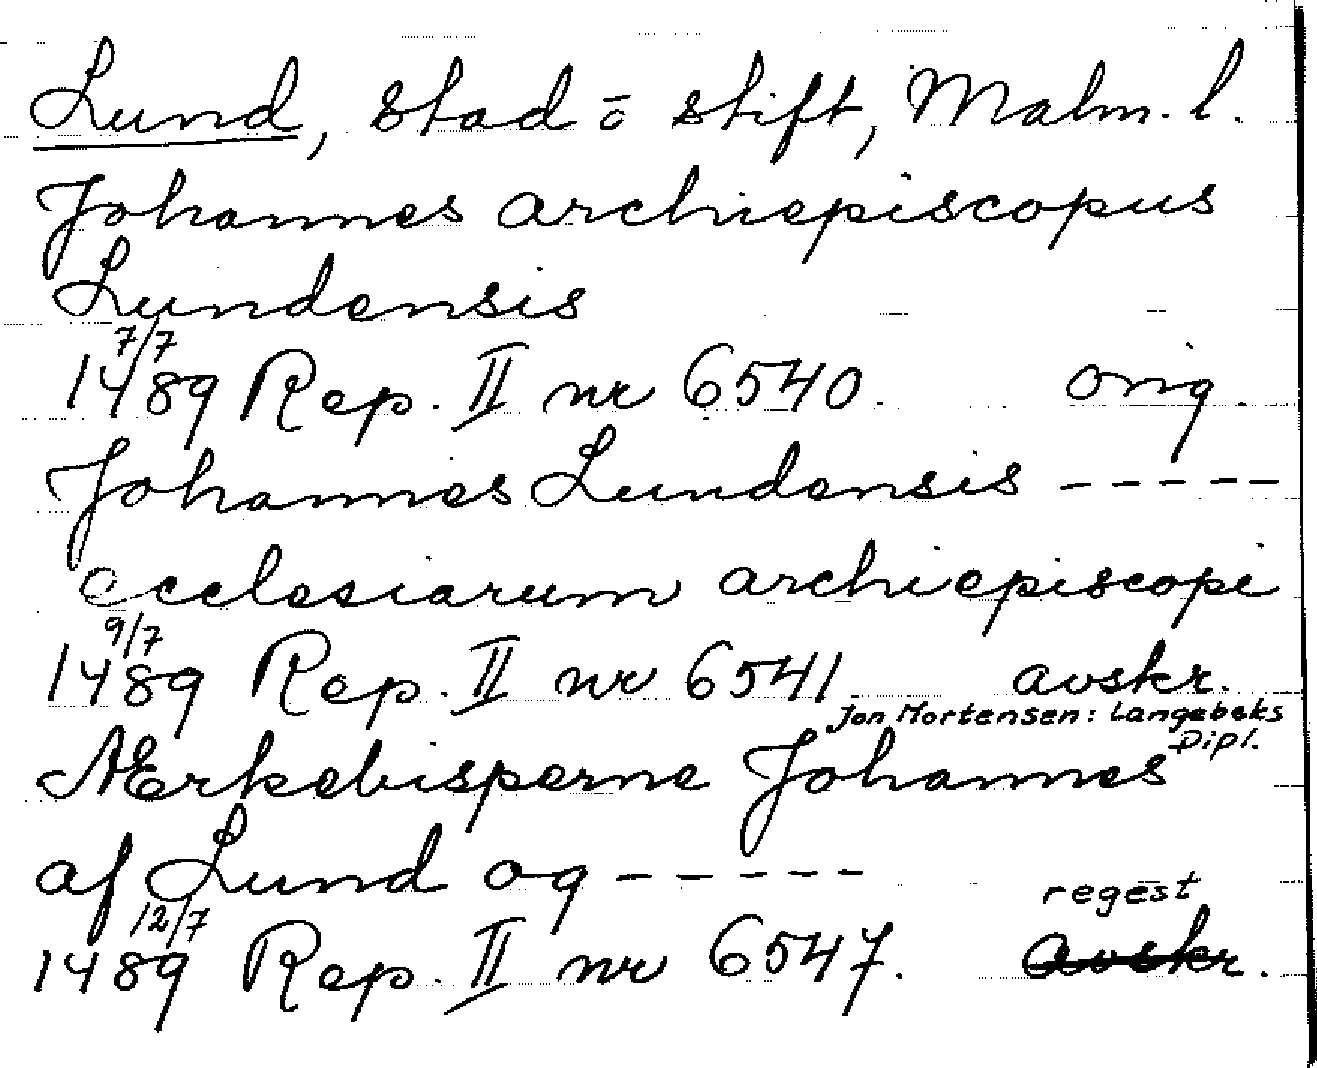 Lund, stad o stift, Malm. l.
Johannes archiepiscopus
Lundensis
7/7
1489 Rep. II nr 6540. orig.
Johannes Lundensis -----
ecclesiarum archiepiscopi
9/7
1489 Rep. II nr 6541 avskr.
Jon Mortensen: Langebeks
Dipl.
Ærkebisperne Johannes
af Lund og -----
12/7 regest
1489 Rep. II nr 6547. avskr.